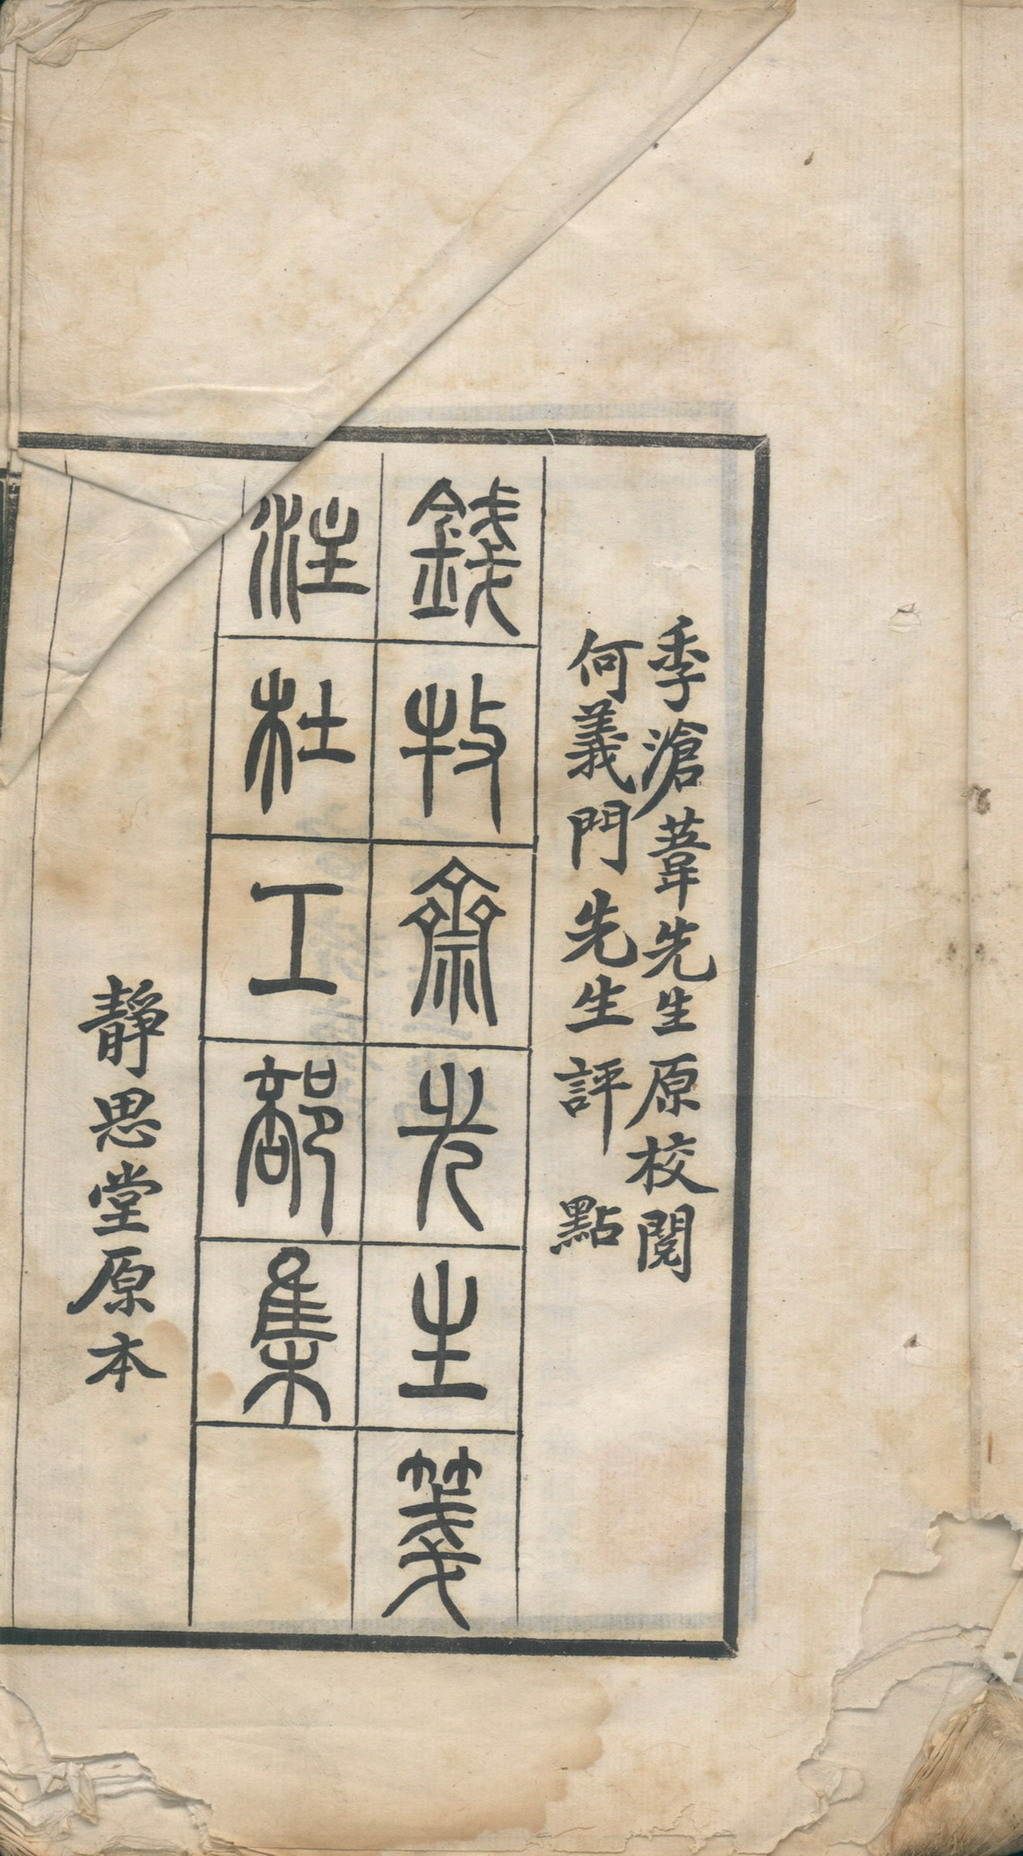 季滄葦先生原校閱
何義門先生評點
錢牧齋先生箋
注杜工部集
靜思堂原本